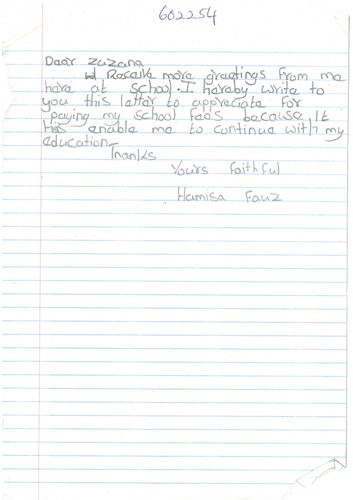 602254
Dear Zuzana
Rosaive more greetings from me
here at school. I hereby write to
you this letter to appreciate for
paying my school fees because It
has enable me to continue with my
education
Thanks
Yours faithful
Hamisa Fauz